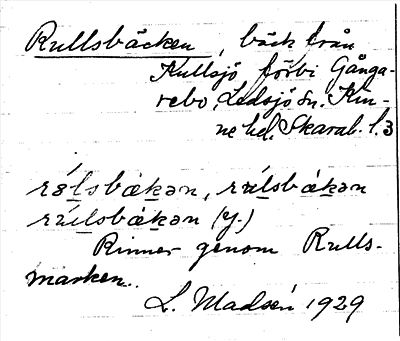 Rullsbäcken, bäck från
Kullsjö förbi Gånga-
rebo, Ledsjö sn. Kin-
ne hd. Skarab. l. 3
rɵ́lsbǽkən, rúlsbǽkən
rúlsbǽkən (y.)
Rinner genom Rulls-
marken.
L. Madsén 1929